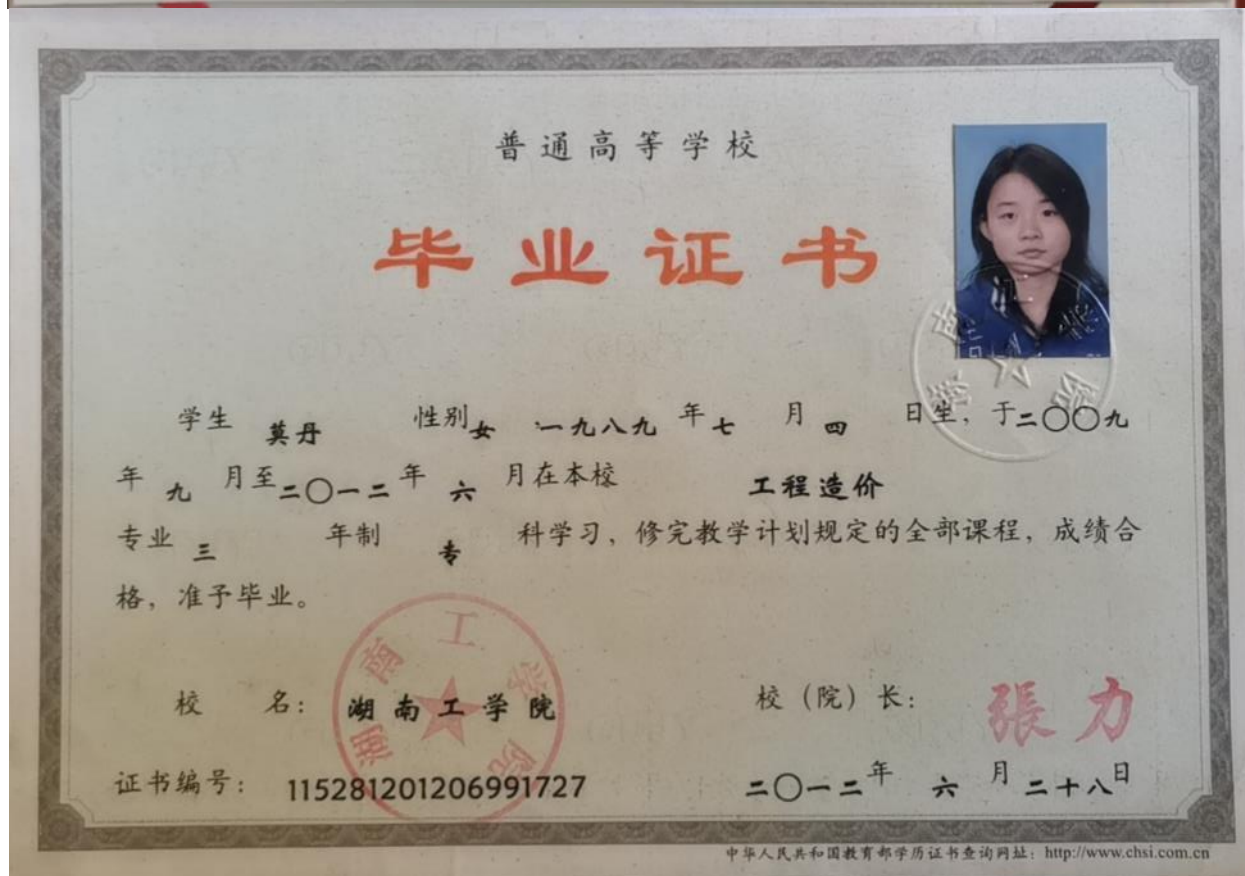 普通高等学校
毕业证书
学生 莫丹 性别 女 一九八九 年 七 月 四 日生，于二〇〇九
年 九 月至二〇一二年 六 月在本校 工程造价
专业 三 年制 专 科学习，修完教学计划规定的全部课程，成绩合
格，准予毕业。
湖南工学院
校 名：湖南工学院 校（院）长：張力
证书编号：115281201206991727 二〇一二年 六 月 二十八日
中华人民共和国教育部学历证书查询网址：http://www.chsi.com.cn